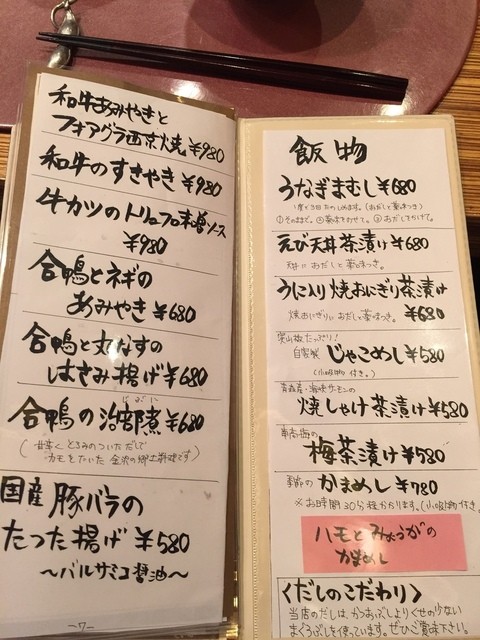 和牛あみやきと
フォアグラ西京焼 ¥980
和牛のすきやき ¥980
牛カツのトリュフ味噌ソース
¥980
合鴨とネギの
あみやき ¥680
合鴨と丸なすの
はさみ揚げ ¥680
合鴨の治部煮 ¥680
じぶに
(甘辛くとろみのついただしで
カモをたいた金沢の郷土料理です)
国産 豚バラの
たつた揚げ ¥580
〜バルサミコ醤油〜
—7—
飯物
うなぎまむし ¥680
①そのまま。②薬味をのせて。③おだしをかけて。
えび天丼茶漬け ¥680
天丼におだしと薬味つき。
うに入り焼おにぎり茶漬け
焼おにぎりにおだしと薬味つき。 ¥680
実山椒たっぷり!
自家製 じゃこめし ¥580
(小吸物付き。)
焼しゃけ茶漬け ¥580
梅茶漬け ¥580
季節の かまめし ¥780
※お時間30分程かかります。(小吸物付き。
ハモとみょうがの
かまめし
〈だしのこだわり〉
当店のだしは、かつおぶしよりくせの少ない
まぐろぶしを使っています。ぜひご賞味下さい。